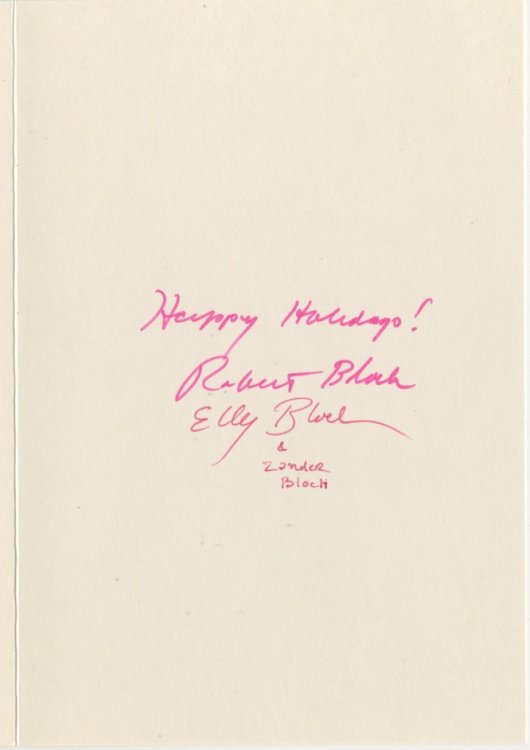 Happy Holidays!
Robert Bloch
Elly Bloch
&
Zander
Bloch